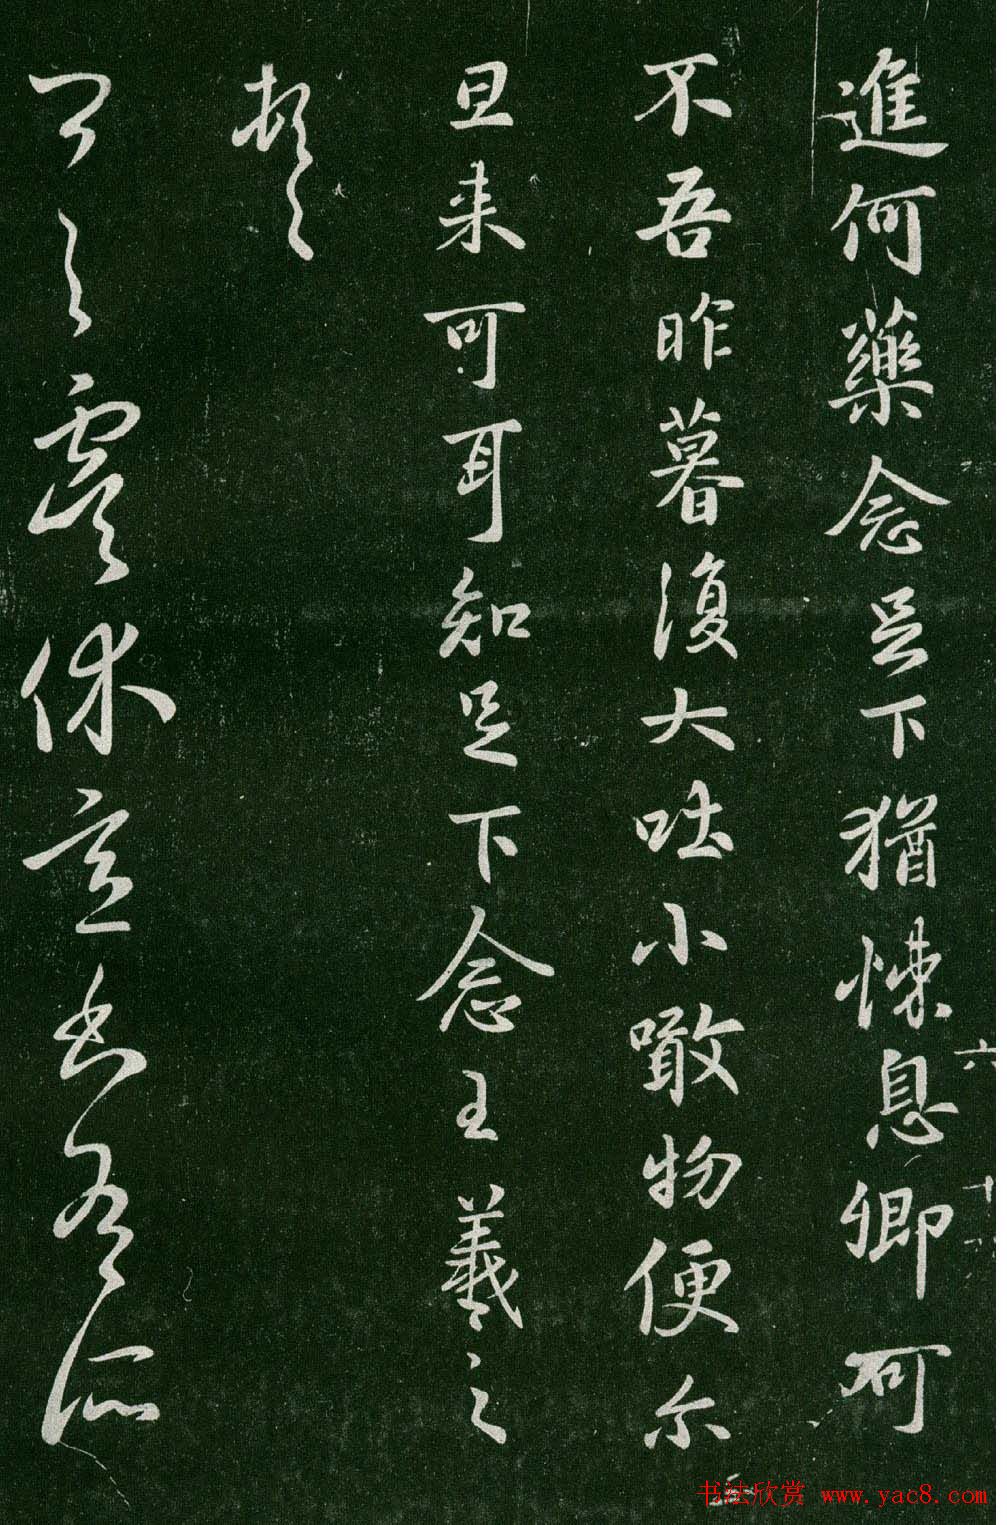 進何藥念足下猶悚息卿可
不吾昨暮復大吐小噉物便尓
旦来可耳知足下念王羲之
頓
虚休立
六
十
书法欣赏 www.yac8.com